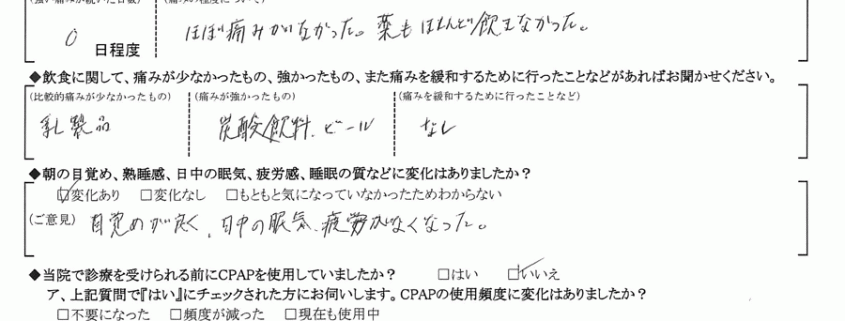 (強い痛みが続いた日数) (痛みの程度について)
0 日程度 ほぼ痛みがなかった。薬もほとんど飲まなかった。
◆飲食に関して、痛みが少なかったもの、強かったもの、また痛みを緩和するために行ったことなどがあればお聞かせください。
(比較的痛みが少なかったもの) (痛みが強かったもの) (痛みを緩和するために行ったことなど)
乳製品 炭酸飲料、ビール なし
◆朝の目覚め、熟睡感、日中の眠気、疲労感、睡眠の質などに変化はありましたか?
☑変化あり □変化なし □もともと気になっていなかったためわからない
(ご意見) 目覚めが良く、日中の眠気、疲労がなくなった。
◆当院で診療を受けられる前にCPAPを使用していましたか? □はい ☑いいえ
ア、上記質問で『はい』にチェックされた方にお伺いします。CPAPの使用頻度に変化はありましたか?
□不要になった □頻度が減った □現在も使用中